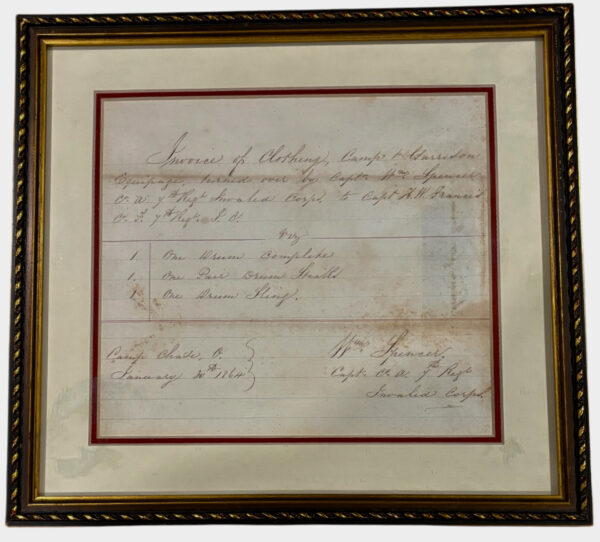 Invoice of Clothing, Camp & Garrison
Equipage turned over by Capt. Wm Spencer
Co. A. 7th Regt. Invalid Corps, to Capt H. W. Francis
Co. 7th Regt. I. C.
Viz
1. One Drum Complete
1. One Pair Drum Sticks
1 One Drum Sling.
Camp Chase, O.
January 20th 1864
Wm Spencer,
Capt. Co. A. 7th Regt
Invalid Corps.